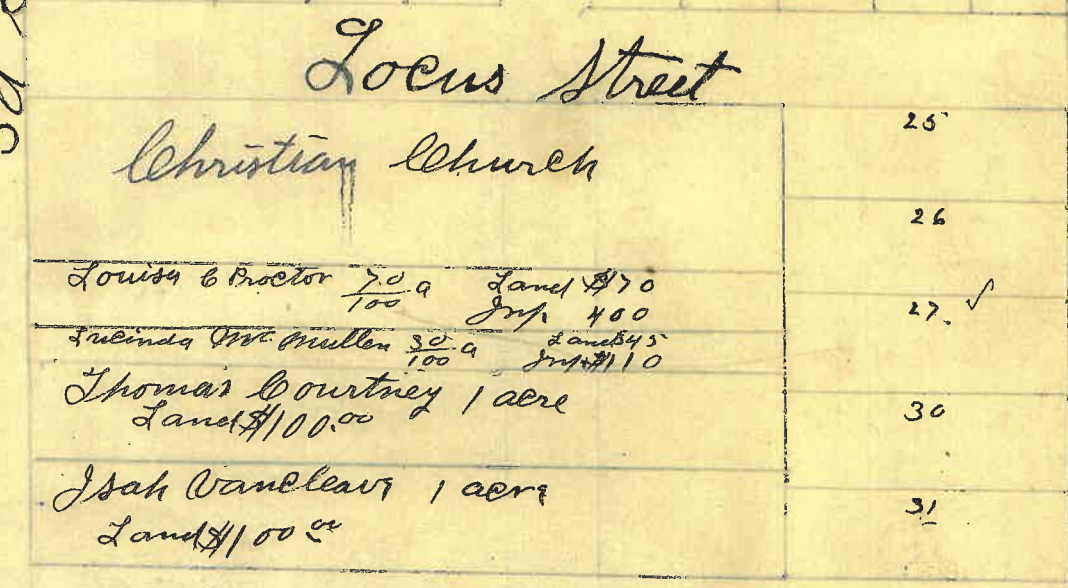 Locus Street
Christian Church
25
26
Louisa C Proctor 70/100 a Land $70
Imp. 400
27. ✓
Lucinda Mc Mullen 30/100 a Land $45
Imp. $110
Thomas Courtney 1 acre
Land $100.00
30
Isah Vancleave 1 acre
Land $100 00
31